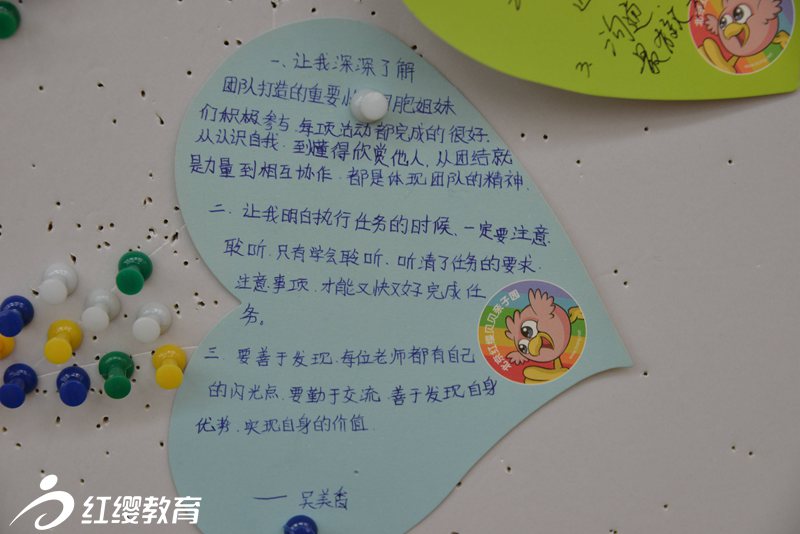 一、让我深深了解
团队打造的重要性,细胞姐妹
们积极参与.每项活动都完成的很好.
从认识自我.到懂得欣赏他人.从团结就
是力量到相互协作.都是体现团队的精神.
二.让我明白执行任务的时候、一定要注意
聆听.只有学会聆听.听清了任务的要求.
注意事项.才能又快又好完成任
务。
三.要善于发现.每位老师都有自己
的闪光点.要勤于交流.善于发现自身
优势.实现自身的价值.
——吴美香
沟通
3 最有效
北京红缨贝贝亲子园
红缨教育